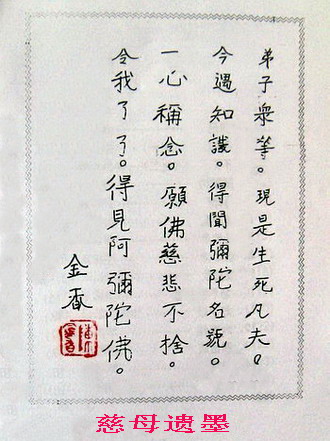 弟子衆等。現是生死凡夫。
今遇知識。得聞彌陀名號。
一心稱念。願佛慈悲不捨。
令我了了。得見阿彌陀佛。
金香
慈母遗墨